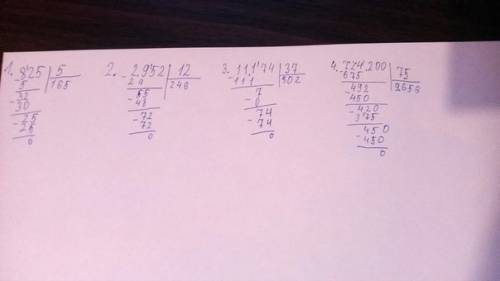 1. 825 | 5
-5 | 165
-32
30
-25
25
0
2. -2952 | 12
24 | 246
-55
48
-72
72
0
3. -11174 | 37
111 | 302
7
-0
74
-74
0
4. -724200 | 75
675 | 9656
-492
450
-420
375
-450
-450
0